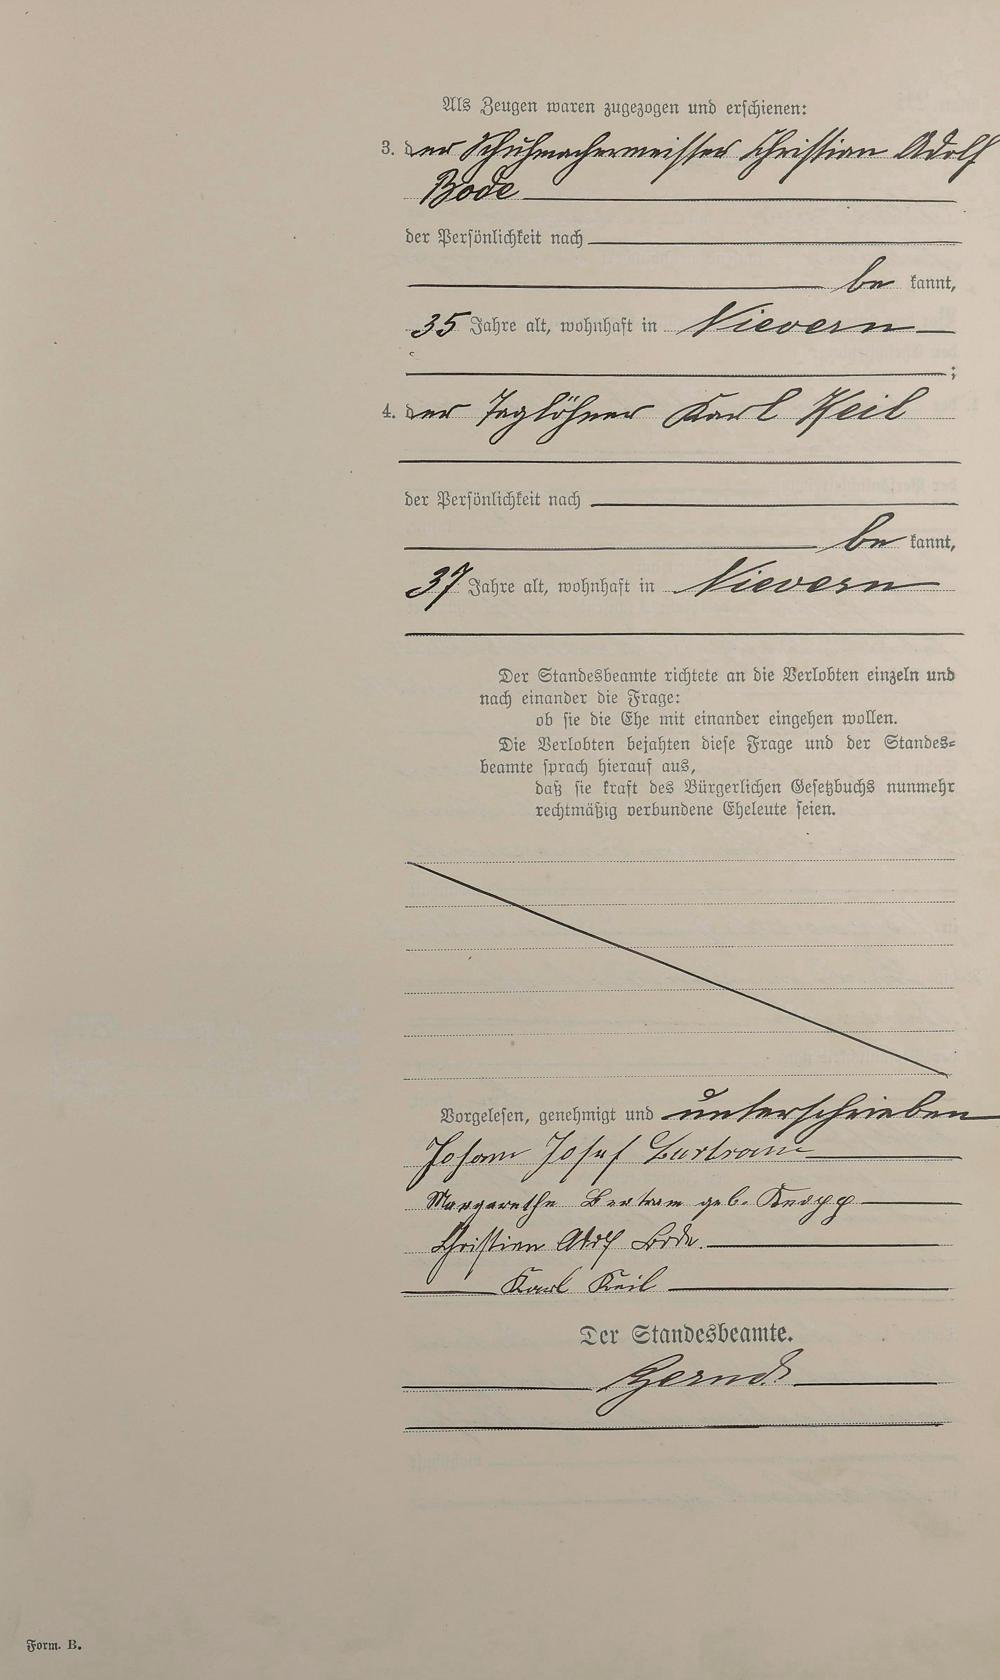 Als Zeugen waren zugezogen und erschienen:
3. der Schuhmachermeister Christian Adolf
Bode
der Persönlichkeit nach
be kannt,
35 Jahre alt, wohnhaft in Nievern
;
4. der Taglöhner Karl Keil
der Persönlichkeit nach
be kannt,
37 Jahre alt, wohnhaft in Nievern
Der Standesbeamte richtete an die Verlobten einzeln und
nach einander die Frage:
ob sie die Ehe mit einander eingehen wollen.
Die Verlobten bejahten diese Frage und der Standes-
beamte sprach hierauf aus,
daß sie kraft des Bürgerlichen Gesetzbuchs nunmehr
rechtmäßig verbundene Eheleute seien.
Vorgelesen, genehmigt und unterschrieben
Johann Josef Bertram
Margarethe Bertram geb. Knopp
Christian Adolf Bode.
Karl Keil
Der Standesbeamte.
Form. B.